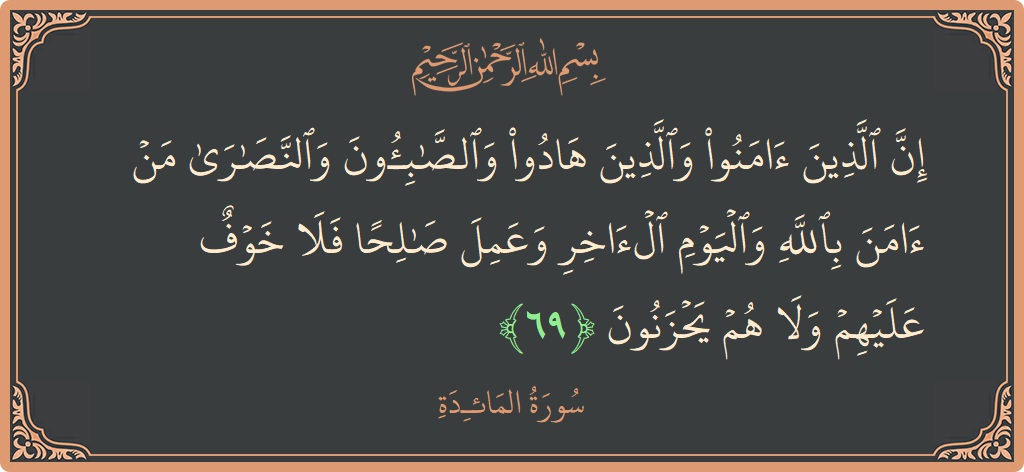 بِسْمِ اللَّهِ الرَّحْمَٰنِ الرَّحِيمِ
إِنَّ ٱلَّذِينَ ءَامَنُوا۟ وَٱلَّذِينَ هَادُوا۟ وَٱلصَّـٰبِـُٔونَ وَٱلنَّصَـٰرَىٰ مَنْ
ءَامَنَ بِٱللَّهِ وَٱلْيَوْمِ ٱلْـَٔاخِرِ وَعَمِلَ صَـٰلِحًا فَلَا خَوْفٌ
عَلَيْهِمْ وَلَا هُمْ يَحْزَنُونَ ﴿٦٩﴾
سُورَةُ المَائـِدَةِ